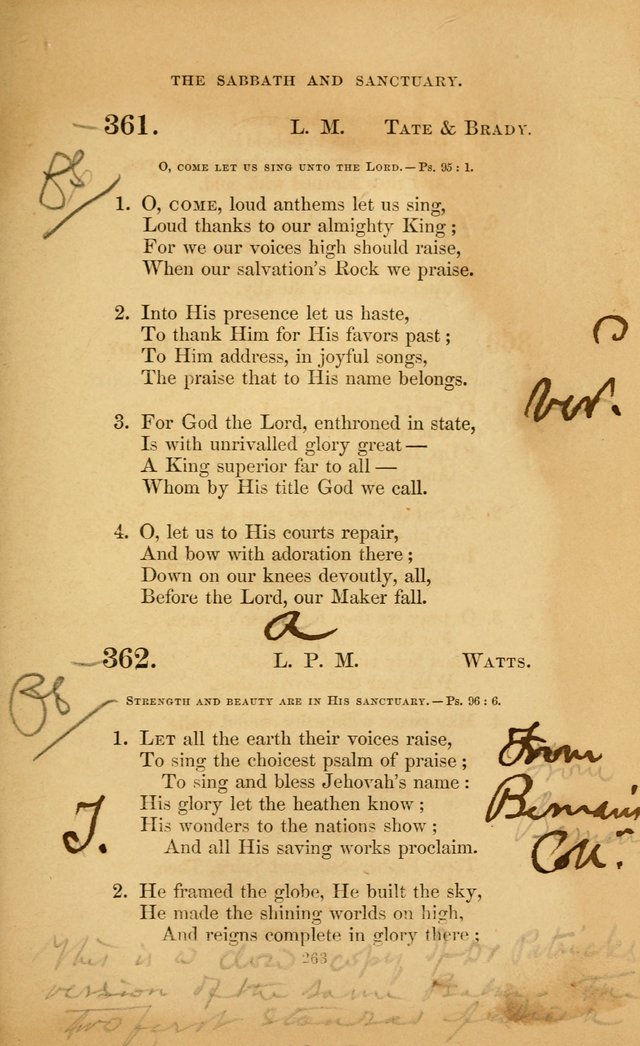 THE SABBATH AND SANCTUARY.
361. L. M. TATE & BRADY.
O, COME LET US SING UNTO THE LORD.—Ps. 95 : 1.
1. O, COME, loud anthems let us sing,
Loud thanks to our almighty King ;
For we our voices high should raise,
When our salvation's Rock we praise.
2. Into His presence let us haste,
To thank Him for His favors past ;
To Him address, in joyful songs,
The praise that to His name belongs.
ver.
3. For God the Lord, enthroned in state,
Is with unrivalled glory great —
A King superior far to all —
Whom by His title God we call.
4. O, let us to His courts repair,
And bow with adoration there ;
Down on our knees devoutly, all,
Before the Lord, our Maker fall.
a
362. L. P. M. WATTS.
STRENGTH AND BEAUTY ARE IN HIS SANCTUARY.—Ps. 96 : 6.
1. LET all the earth their voices raise,
To sing the choicest psalm of praise ;
To sing and bless Jehovah's name :
His glory let the heathen know ;
His wonders to the nations show ;
And all His saving works proclaim.
J.
From
Beman's
Coll.
2. He framed the globe, He built the sky,
He made the shining worlds on high,
And reigns complete in glory there ;
263
This is a close copy of Dr Patricks
version of the same Psalm. The
two first stanzas